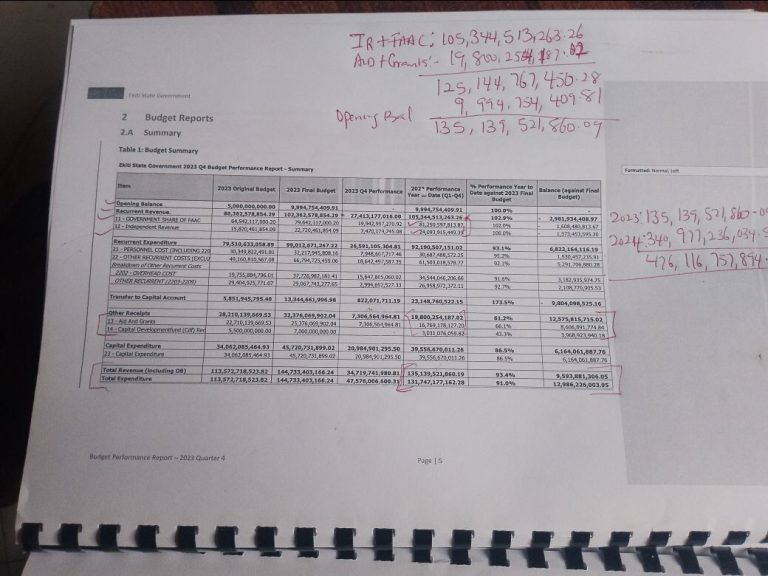 IR + FAAC: 105,344,513,263.26
AID + Grants:- 19,800,254,187.02
125,144,767,450.28
9,994,754,409.81
Opening Bal 135,139,521,860.09
Ekiti State Government
2 Budget Reports
2.A Summary
Table 1: Budget Summary
Ekiti State Government 2023 Q4 Budget Performance Report - Summary
Formatted: Normal, Left
Item 2023 Original Budget 2023 Final Budget 2023 Q4 Performance Performance Year to Date (Q1-Q4) % Performance Year to Date against 2023 Final Budget Balance (against Final Budget)
Opening Balance 5,000,000,000.00 9,994,754,409.91 9,994,754,409.91 100.0%
Recurrent Revenue 80,362,578,854.29 102,362,578,854.29 27,413,177,016.09 105,344,513,263.26 102.9% - 2,981,934,408.97
11 - GOVERNMENT SHARE OF FAAC 64,542,117,000.20 79,642,117,000.20 19,942,957,270.92 81,250,597,813.87 102.0% - 1,608,480,813.67
12 - Independent Revenue 15,820,461,854.09 22,720,461,854.09 7,470,174,745.08 24,093,915,449.39 - 1,373,453,595.30
2023: 135,139,521,860.09
2024: 340,977,236,034.5
476,116,757,894.
Recurrent Expenditure 79,510,633,058.89 99,012,671,267.22 26,591,105,304.81 92,190,507,151.02 93.1% 6,822,164,116.19
21 - PERSONNEL COST (INCLUDING 220 30,349,822,491.81 32,217,945,808.16 7,948,667,717.46 30,687,488,572.25 95.2% 1,530,457,235.91
22 - OTHER RECURRENT COSTS (EXCLU 49,160,810,567.08 66,794,725,459.06 18,642,497,587.35 61,503,018,578.77 92.1% 5,291,706,880.28
Breakdown of Other Recurrent Costs
2202 - OVERHEAD COST 19,755,884,796.01 37,726,982,181.41 15,647,805,060.02 34,544,046,206.66 91.6% 3,182,935,974.75
OTHER RECURRENT (2203-2209) 29,404,925,771.07 29,067,743,277.65 2,994,692,527.33 26,958,972,372.11 92.7% 2,108,770,905.53
Transfer to Capital Account 5,851,945,795.40 13,344,661,996.98 822,071,711.19 23,148,760,522.15 173.5% - 9,804,098,525.16
Other Receipts 28,210,139,669.53 32,376,069,902.04 7,306,564,964.81 19,800,254,187.02 61.2% 12,575,815,715.02
13 - Aid And Grants 22,710,139,669.53 25,376,069,902.04 7,306,564,964.81 16,769,178,127.20 66.1% 8,606,891,774.84
14 - Capital Development Fund (Cdf) Rec 5,500,000,000.00 7,000,000,000.00 3,031,076,059.82 43.3% 3,968,923,940.18
Capital Expenditure 34,062,085,464.93 45,720,731,899.02 20,984,901,295.50 39,556,670,011.26 86.5% 6,164,061,887.76
23 - Capital Expenditure 34,062,085,464.93 45,720,731,899.02 20,984,901,295.50 39,556,670,011.26 86.5% 6,164,061,887.76
Total Revenue (including OB) 113,572,718,523.82 144,733,403,166.24 34,719,741,980.81 135,139,521,860.19 93.4% 9,593,881,306.05
Total Expenditure 113,572,718,523.82 144,733,403,166.24 47,576,006,600.31 131,747,177,162.28 91.0% 12,986,226,003.95
Budget Performance Report – 2023 Quarter 4
Page | 5